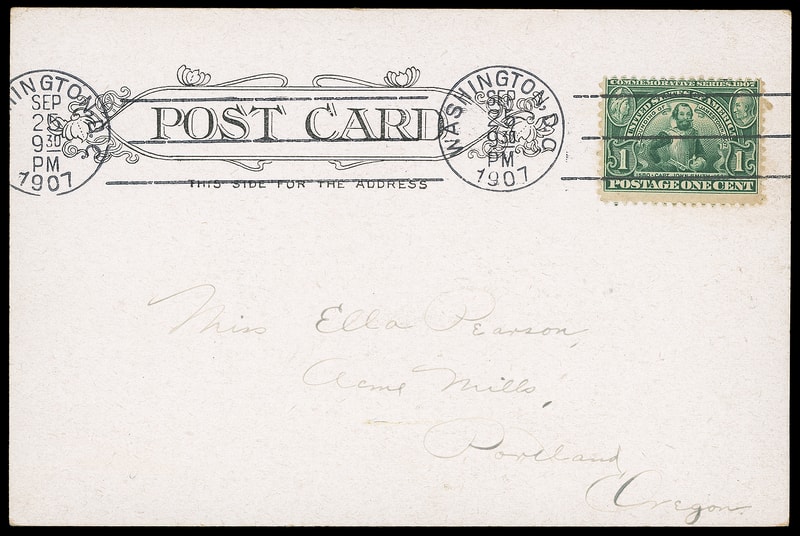 WASHINGTON, D.C.
SEP
25
9 30
PM
1907
POST CARD
THIS SIDE FOR THE ADDRESS
WASHINGTON, D.C.
SEP
25
9 30
PM
1907
COMMEMORATIVE SERIES 1907
UNITED STATES OF AMERICA
1 1
POSTAGE ONE CENT
Miss Ella Pearson,
Acme Mills,
Portland
Oregon.